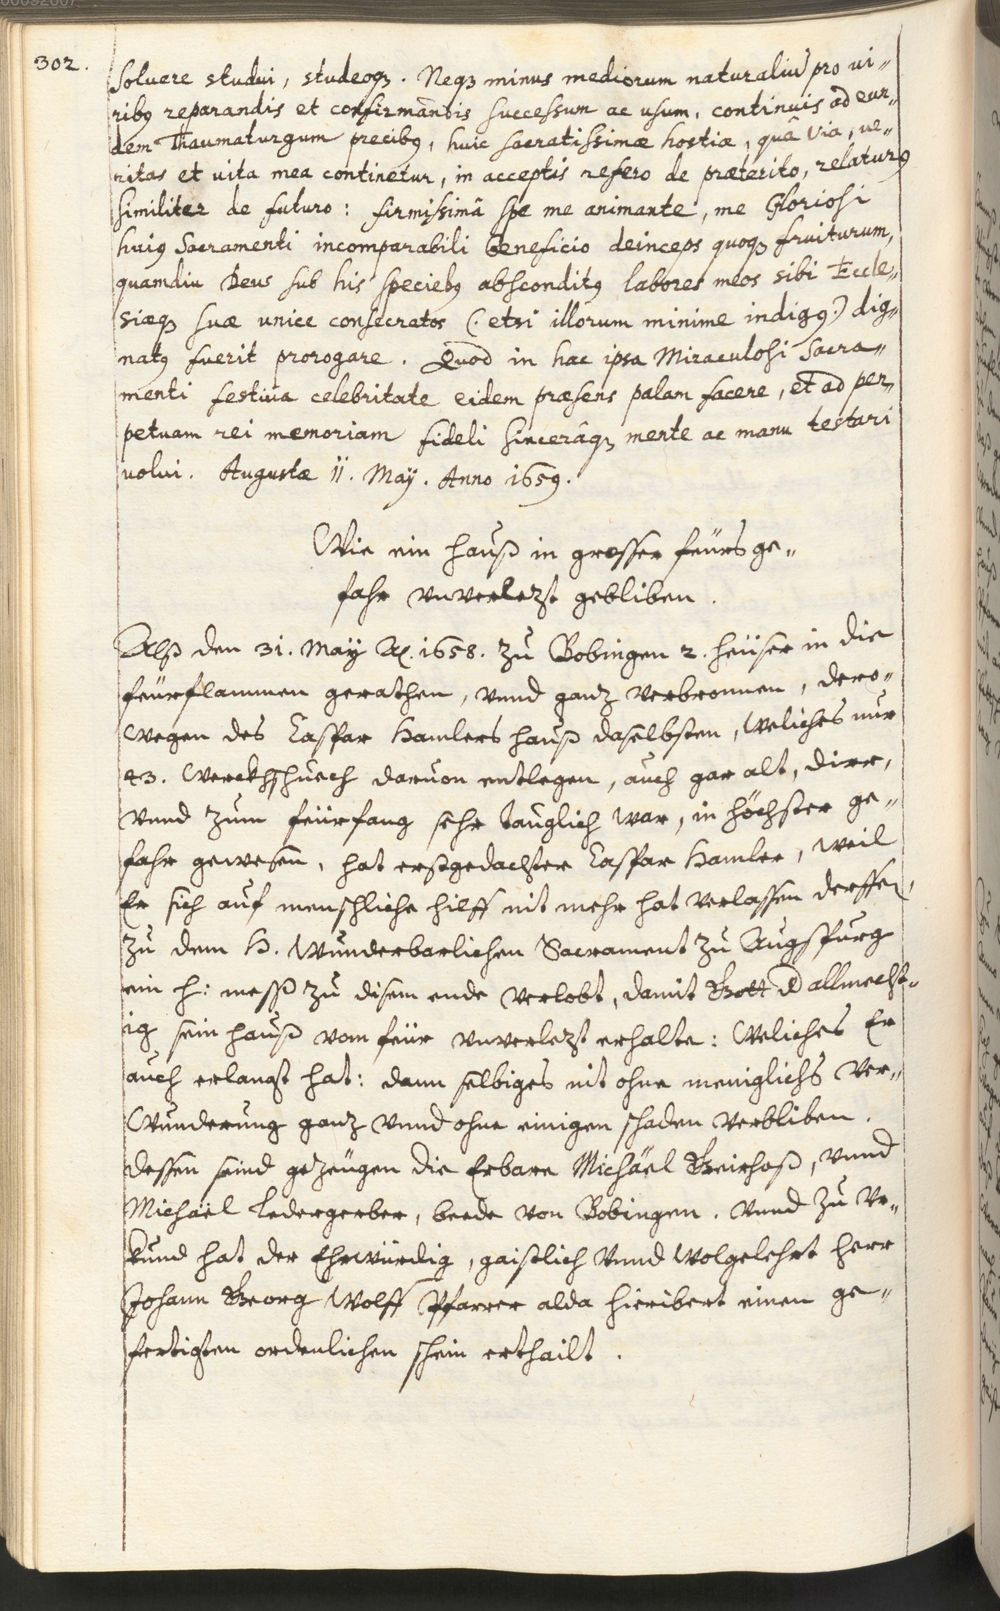 302.
soluere studui, studeoqꝫ. Neqꝫ minus mediorum naturaliū pro vi„
ribꝰ reparandis et confirmandis successum ac usum, continuis ad eun„
dem Thaumaturgum precibꝰ, huic sacratissimæ hostiæ, quâ via, ve„
ritas et uita mea continetur, in acceptis refero de præterito, relaturꝰ
similiter de futuro: firmissimâ spe me animante, me Gloriosi
huiꝰ Sacramenti incomparabili beneficio deinceps quoqꝫ fruiturum,
quamdiu Deus sub his speciebꝰ absconditꝰ labores meos sibi Eccle„
siæqꝫ suæ unice consecratos (: etsi illorum minime indigꝰ:) dig„
natꝰ fuerit prorogare. Quod in hac ipsa Miraculosi Sacra„
menti festiua celebritate eidem præsens palam facere, et ad per„
petuam rei memoriam fideli sincerâqꝫ mente ac manu testari
uolui. Augustæ 11. Maÿ. Anno 1659.
Wie ein hauß in grosser feürsge„
fahr vnuerlezt gebliben.
Alß den 31. Maÿ Ao. 1658. zu Bobingen 2. heüser in die
feürflammen gerathen, vnnd ganz verbronnen, dero„
wegen des Caspar Hamlers hauß daselbsten, weliches nur
43. Werckhschuech daruon entlegen, auch gar alt, dirr,
vnnd zum feürfang sehr tauglich war, in höchster ge„
fahr gewesen, hat erstgedachter Caspar Hamler, weil
Er sich auf menschliche hilff nit mehr hat verlassen derffen,
zu dem H. Wunderbarlichen Sacrament zu Augspurg
ein h: mess zu disem ende verlobt, damit Gott d allmecht„
ig sein hauß vom feür vnuerlezt erhalte: Weliches Er
auch erlangt hat: dann selbiges nit ohne meniglichs ver„
wunderung ganz vnnd ohne einigen schaden verbliben.
dessen seind gezeügen die Erbare Michäel Geirhoß, vnnd
Michäel Ledergerber, beede von Bobingen. vnnd zu Vr„
kund hat der Ehrwürdig, gaistlich vnnd wolgelehrt herr
Johann Georg Wolff Pfarrer alda hieribert einen ge„
fertigten ordenlichen schein erthailt.